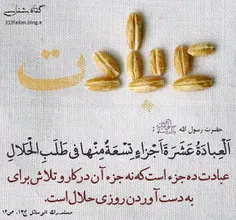 گناه شناسی
313fadaii.blog.ir
عبادت
حضرت رسول الله ﷺ :
اَلْعِبادَةُ عَشَرَةُ اَجْزاءٍ تِسْعَةٌ مِنْها فی طَلَبِ الْحَلالِ
عبادت ده جزء است که نه جزء آن در کار و تلاش برای
به دست آوردن روزی حلال است.
مستدرک الوسائل ج۱۳، ص۱۲